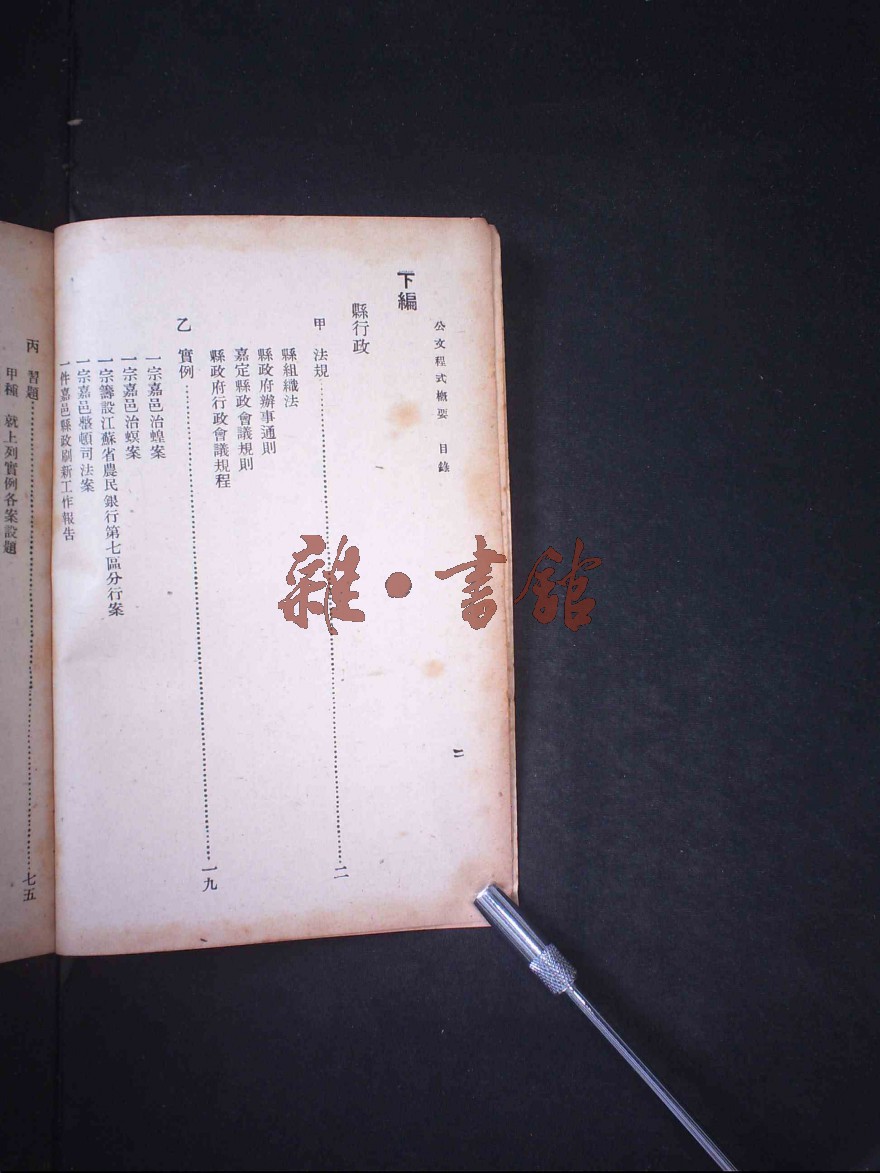 公文程式概要　目錄
二
下編
縣行政
甲　法規……二
縣組織法
縣政府辦事通則
嘉定縣政會議規則
縣政府行政會議規程
乙　實例……一九
一宗嘉邑治蝗案
一宗嘉邑治螟案
一宗籌設江蘇省農民銀行第七區分行案
一宗嘉邑整頓司法案
一件嘉邑縣政刷新工作報告
丙　習題……七五
甲種　就上列實例各案設題
雜·書館